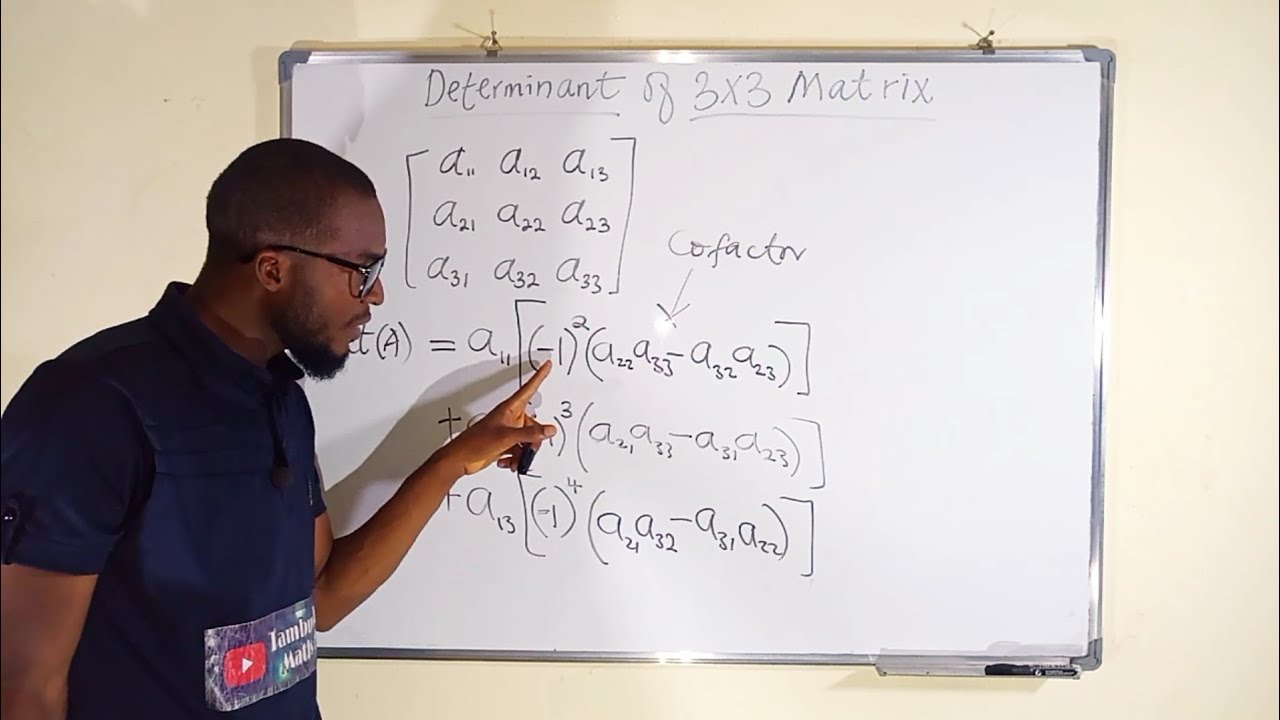 Determinant of 3x3 Matrix
[a₁₁ a₁₂ a₁₃
a₂₁ a₂₂ a₂₃
a₃₁ a₃₂ a₃₃]
Cofactor
t(A) = a₁₁[(-1)²(a₂₂a₃₃-a₃₂a₂₃)]
+ )³(a₂₁a₃₃-a₃₁a₂₃)]
+a₁₃[(-1)⁴(a₂₁a₃₂-a₃₁a₂₂)]